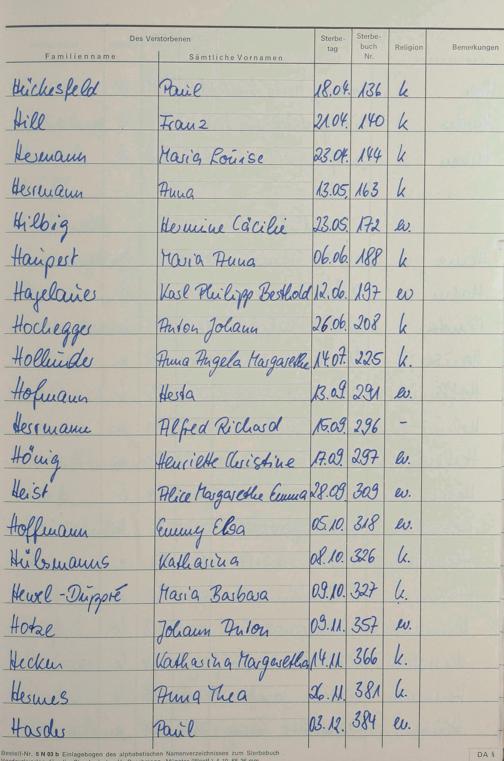 Des Verstorbenen Sterbe- Sterbe-
Familienname Sämtliche Vornamen tag buch Nr. Religion Bemerkungen
Hückesfeld Paul 18.04. 136 k
Hill Franz 21.04. 140 k
Hermann Maria Louise 23.04. 144 k
Herrmann Anna 13.05. 163 k
Hilbig Hermine Cäcilie 23.05. 172 ev.
Haupert Maria Anna 06.06. 188 k
Hagelauer Karl Philipp Berthold 12.06. 197 ev
Hochegger Anton Johann 26.06. 208 k
Holländer Anna Angela Margarethe 14.07. 225 k.
Hofmann Herta 13.09. 291 ev.
Herrmann Alfred Richard 15.09. 296 -
Hönig Henriette Christine 17.09. 297 ev.
Heist Alice Margarethe Emma 28.09. 309 ev.
Hoffmann Emmy Elsa 05.10. 318 ev.
Hülsmanns Katharina 08.10. 326 k.
Maria Barbara 09.10. 327 k.
Hotze Johann Anton 09.11. 357 ev.
Hecken Katharina Margaretha 14.11. 366 k.
Hermes Anna Thea 26.11. 381 k.
Harder Paul 03.12. 384 ev.
Bestell-Nr. S N 03 b Einlagebogen des alphabetischen Namenverzeichnisses zum Sterbebuch DA